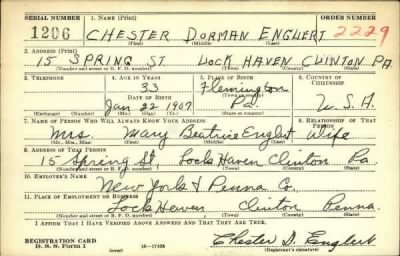 SERIAL NUMBER 1. NAME (Print) ORDER NUMBER
1206 CHESTER DORMAN ENGLERT 2229
(First) (Middle) (Last)
2. ADDRESS (Print)
15 SPRING ST LOCK HAVEN CLINTON PA.
(Number and street or R. F. D. number) (Town) (County) (State)
3. TELEPHONE 4. AGE IN YEARS 5. PLACE OF BIRTH 6. COUNTRY OF CITIZENSHIP
33 Flemington
DATE OF BIRTH (Town or county)
Jan 22 1907 Pa. U.S.A.
(Exchange) (Number) (Mo.) (Day) (Yr.) (State or country)
7. NAME OF PERSON WHO WILL ALWAYS KNOW YOUR ADDRESS 8. RELATIONSHIP OF THAT PERSON
Mrs. Mary Beatrice Englert Wife
(Mr., Mrs., Miss) (First) (Middle) (Last)
9. ADDRESS OF THAT PERSON
15 Spring St, Lock Haven Clinton Pa.
(Number and street or R. F. D. number) (Town) (County) (State)
10. EMPLOYER'S NAME
New York & Penna Co.
11. PLACE OF EMPLOYMENT OR BUSINESS
Lock Haven, Clinton Penna.
(Number and street or R. F. D. number) (Town) (County) (State)
I AFFIRM THAT I HAVE VERIFIED ABOVE ANSWERS AND THAT THEY ARE TRUE.
REGISTRATION CARD
D. S. S. Form 1 (over) 16—17105 Chester D. Englert
(Registrant's signature)